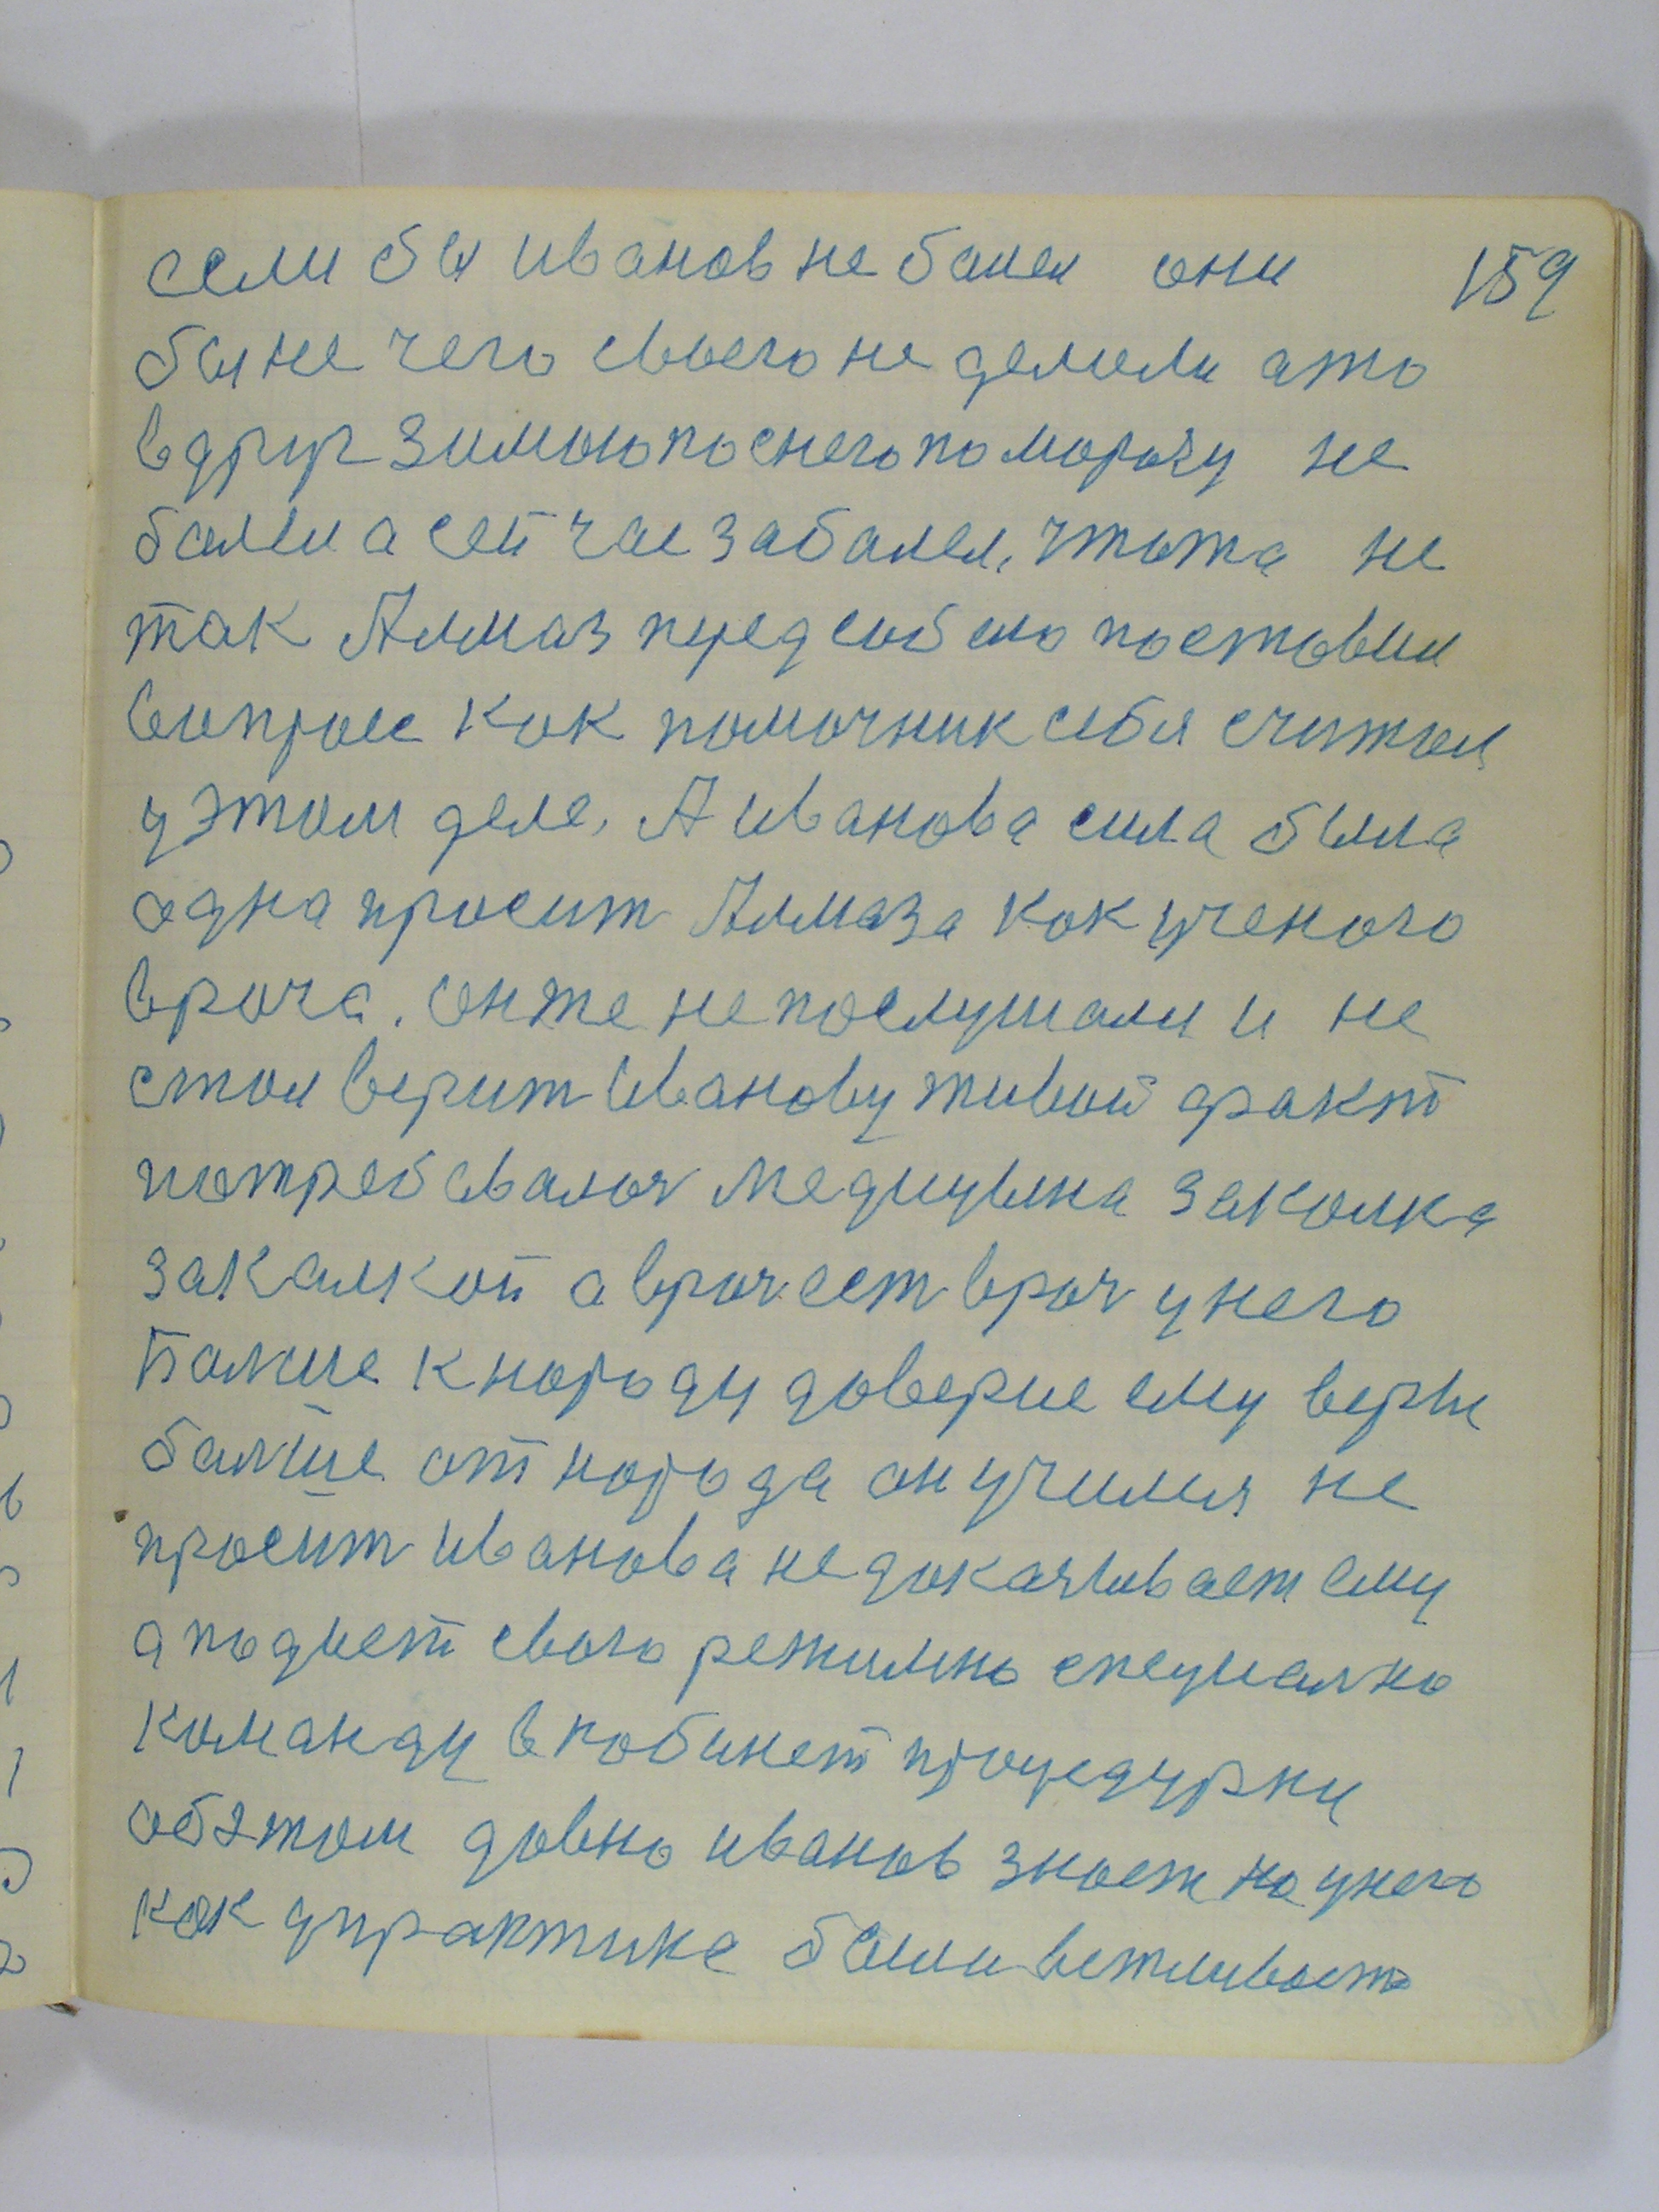 если бы иванов не балел они 159
бы не чего своего не делали ато
вдруг зимою по снего по морозу не
балел а сейчас забалел, чтота не
так Алмаз перед собою поставил
вопрос как помочник себя считал
у этом деле, А иванова сила была
одна просит Алмаза как ученого
врача. он же не послушали и не
стал верит Иванову живой факт
потребовался медицина закалка
закалкой а врач ест врач у него
Балше к народу доверие ему
балше от народа он учился не
просит иванова не доказывает ему
а подает свого режимно специално
команду в кабинет процедурки
об этом давно иванов знает но у него
как у практика были вежливост